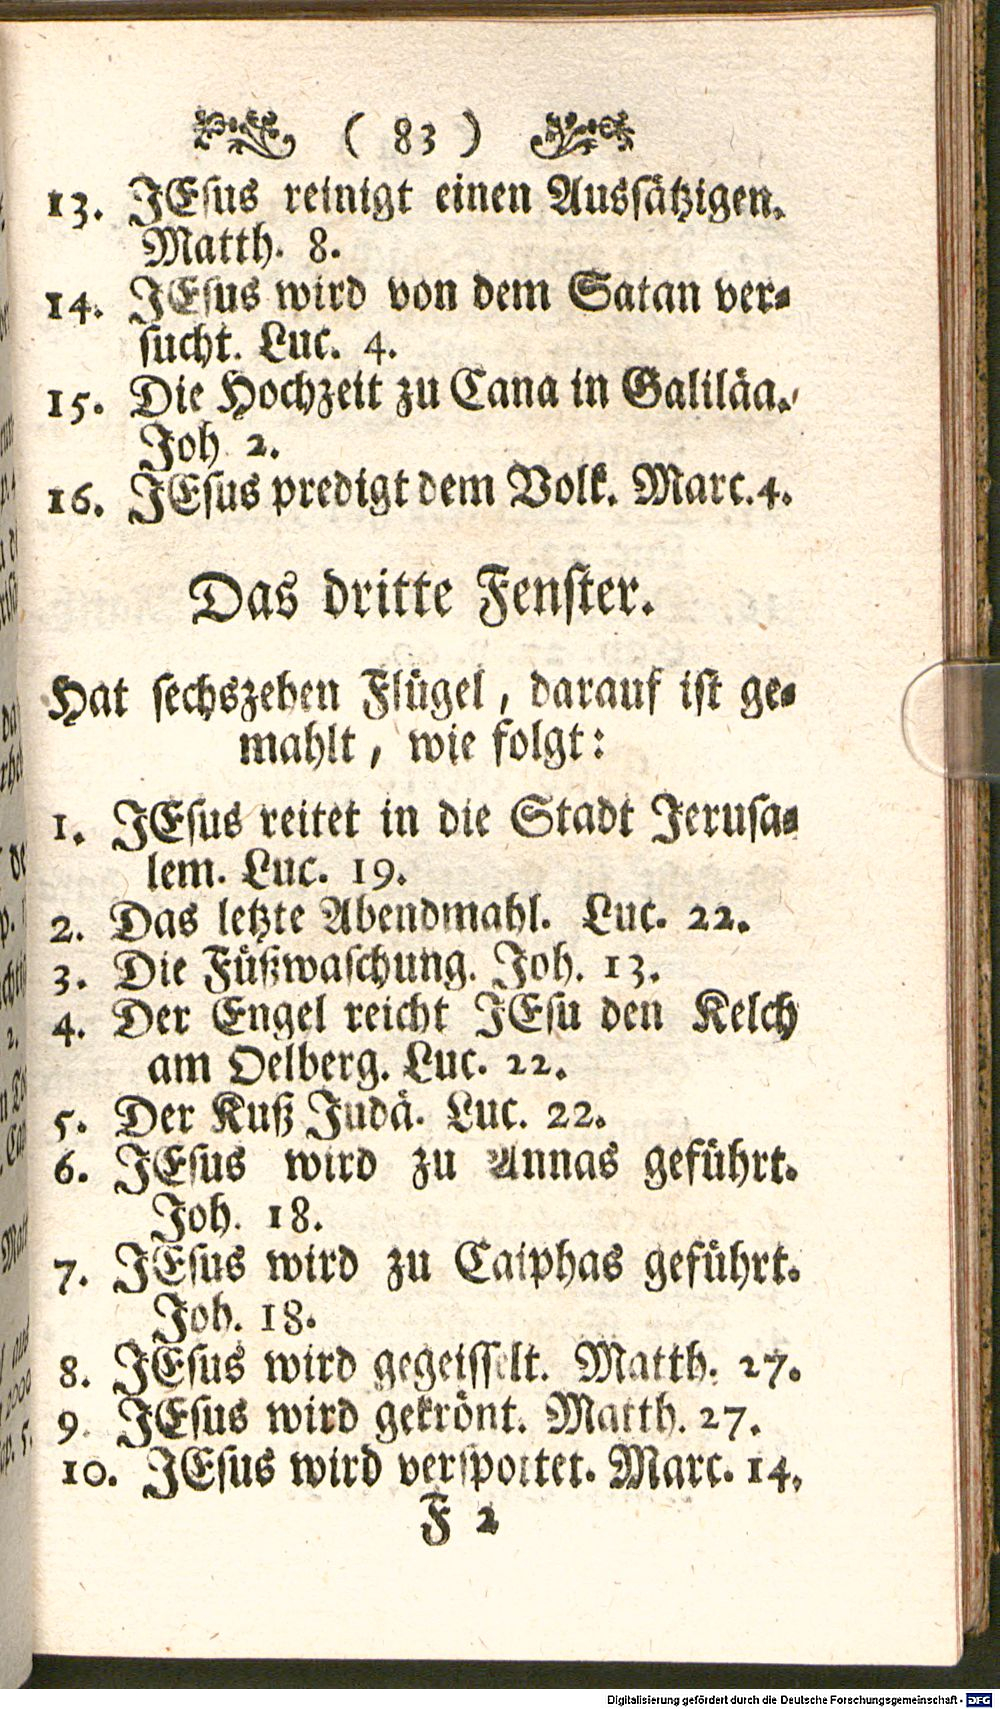 ( 83 )
13. JEsus reinigt einen Aussätzigen.
Matth. 8.
14. JEsus wird von dem Satan ver-
sucht. Luc. 4.
15. Die Hochzeit zu Cana in Galiläa.
Joh. 2.
16. JEsus predigt dem Volk. Marc. 4.
Das dritte Fenster.
Hat sechszehen Flügel, darauf ist ge-
mahlt, wie folgt:
1. JEsus reitet in die Stadt Jerusa-
lem. Luc. 19.
2. Das letzte Abendmahl. Luc. 22.
3. Die Füßwaschung. Joh. 13.
4. Der Engel reicht JEsu den Kelch
am Oelberg. Luc. 22.
5. Der Kuß Judä. Luc. 22.
6. JEsus wird zu Annas geführt.
Joh. 18.
7. JEsus wird zu Caiphas geführt.
Joh. 18.
8. JEsus wird gegeisselt. Matth. 27.
9. JEsus wird gekrönt. Matth. 27.
10. JEsus wird verspottet. Marc. 14.
F 2
Digitalisierung gefördert durch die Deutsche Forschungsgemeinschaft - DFG